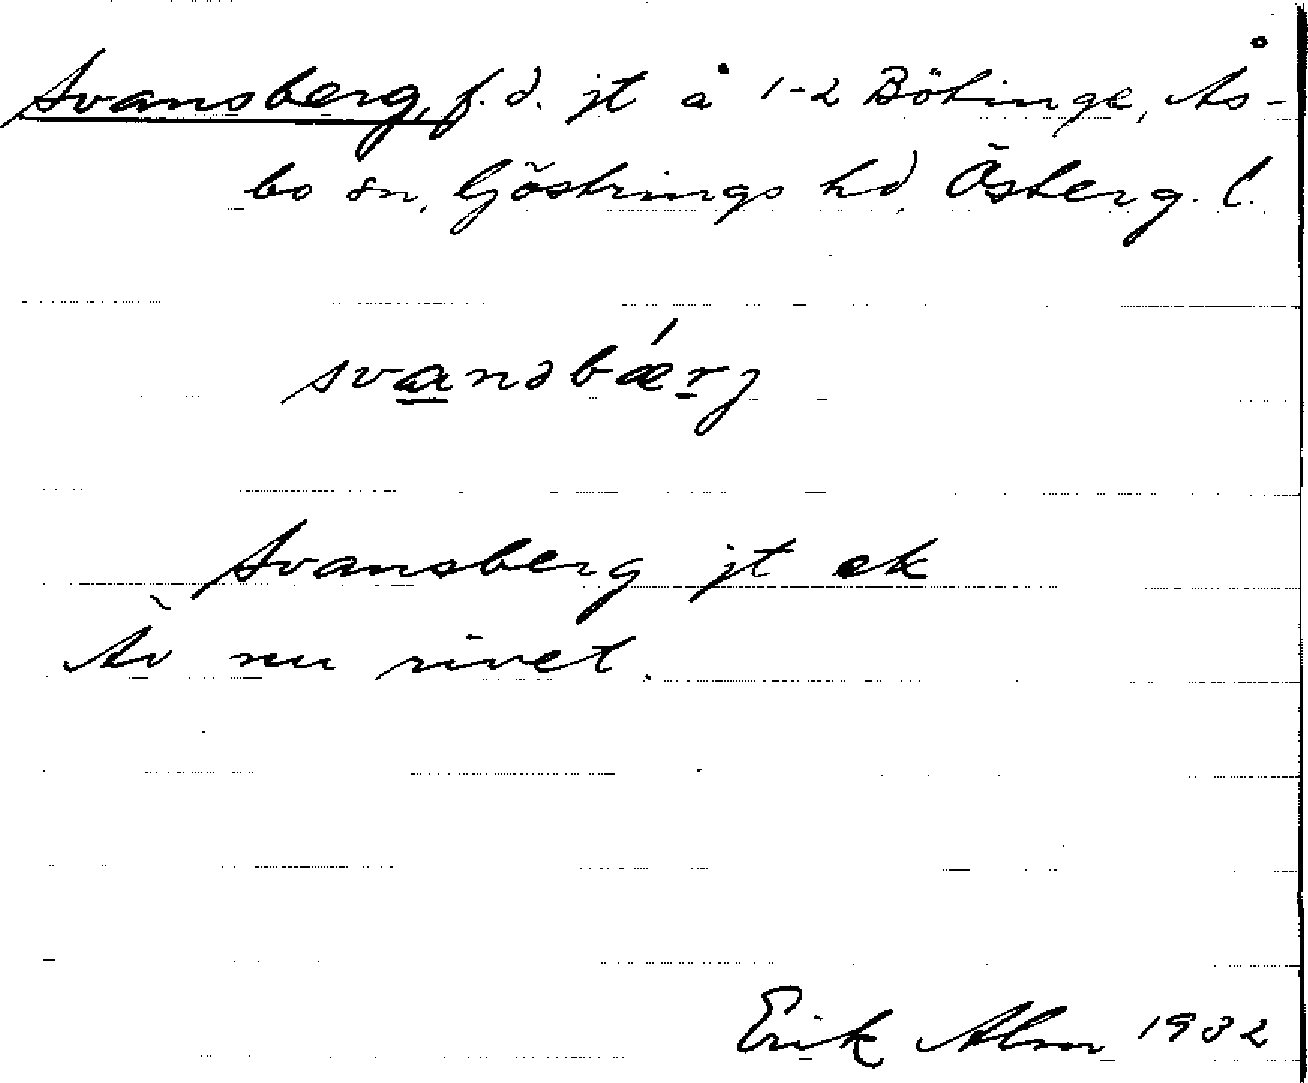 Svansberg, f.d. jt å 1-2 Bötinge, Ås-
bo sn, Göstrings hd, Österg. l.
svansbǽrj
Svansberg jt ek
Är nu rivet.
Erik Alm 1932